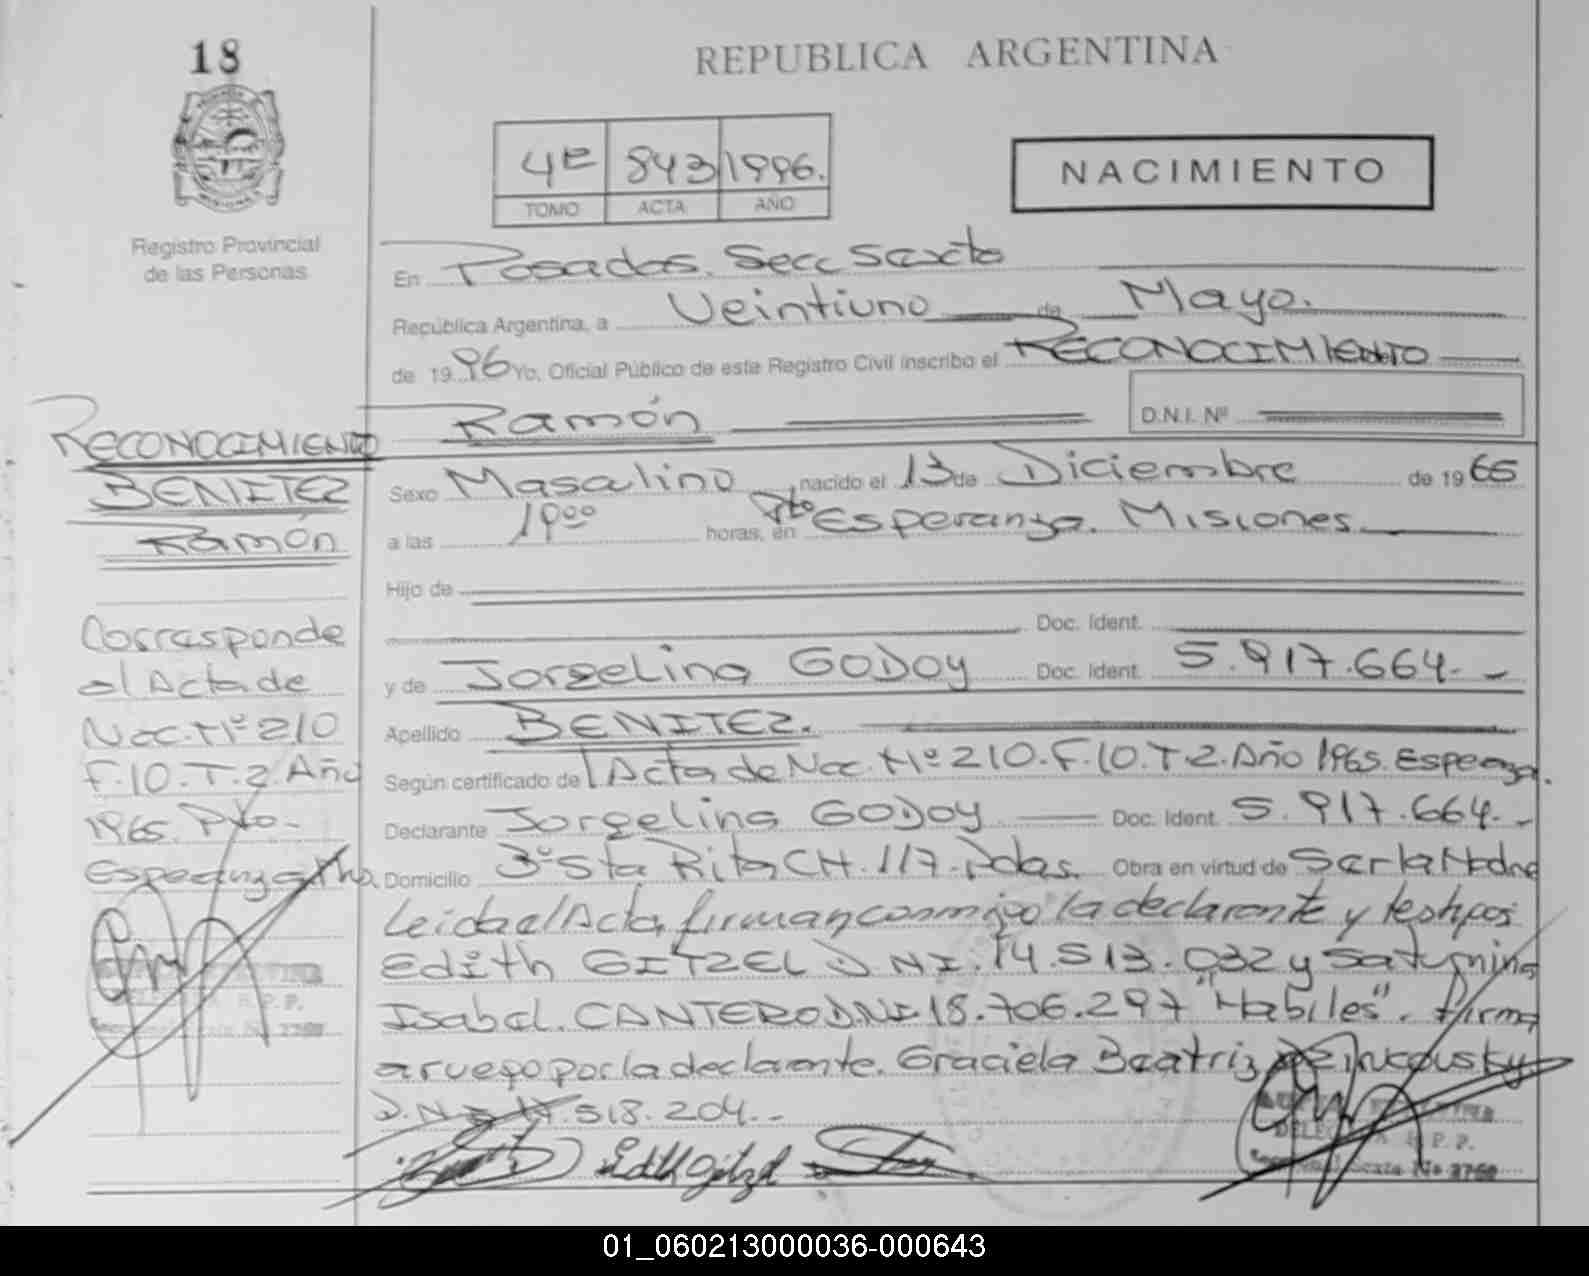 18
REPUBLICA ARGENTINA
4E 843 1996.
TOMO ACTA AÑO
NACIMIENTO
Registro Provincial
de las Personas
En Posadas. Secc Sexta
República Argentina, a Veintiuno de Mayo.
de 1996 Yo, Oficial Público de este Registro Civil inscribo el RECONOCIMIENTO
Ramón D.N.I. Nº
Sexo Masculino nacido el 13 de Diciembre de 1965
a las 19ºº horas, en Pto Esperanza. Misiones
Hijo de
Doc. Ident.
y de Jorgelina GODOY Doc. Ident. 5.917.664.-
Apellido BENITEZ.
Según certificado del Acta de Nac. Nº 210. F.10. T.2. Año 1965. Esperanza.
Declarante Jorgelina GODOY Doc. Ident. 5.917.664.-
Domicilio Bº Sta Rita CH. 117. Pdas. Obra en virtud de Ser la Madre
Leida el Acta, firman conmigo la declarante y testigos
Edith GITZEL D.N.I. 14.513.032 y Saturnina
Isabel. CANTERO D.N.I 18.706.297 "Habiles". firma
a ruego por la declarante. Graciela Beatriz
D.N.I 17.518.204.-
RECONOCIMIENTO
BENITEZ
Ramón
Corresponde
al Acta de
Nac. Nº 210
F.10. T.2. Año
1965. Pto.
Esperanza
DELEGADA R.P.P.
Seccional Sexta No 3760
01_060213000036-000643